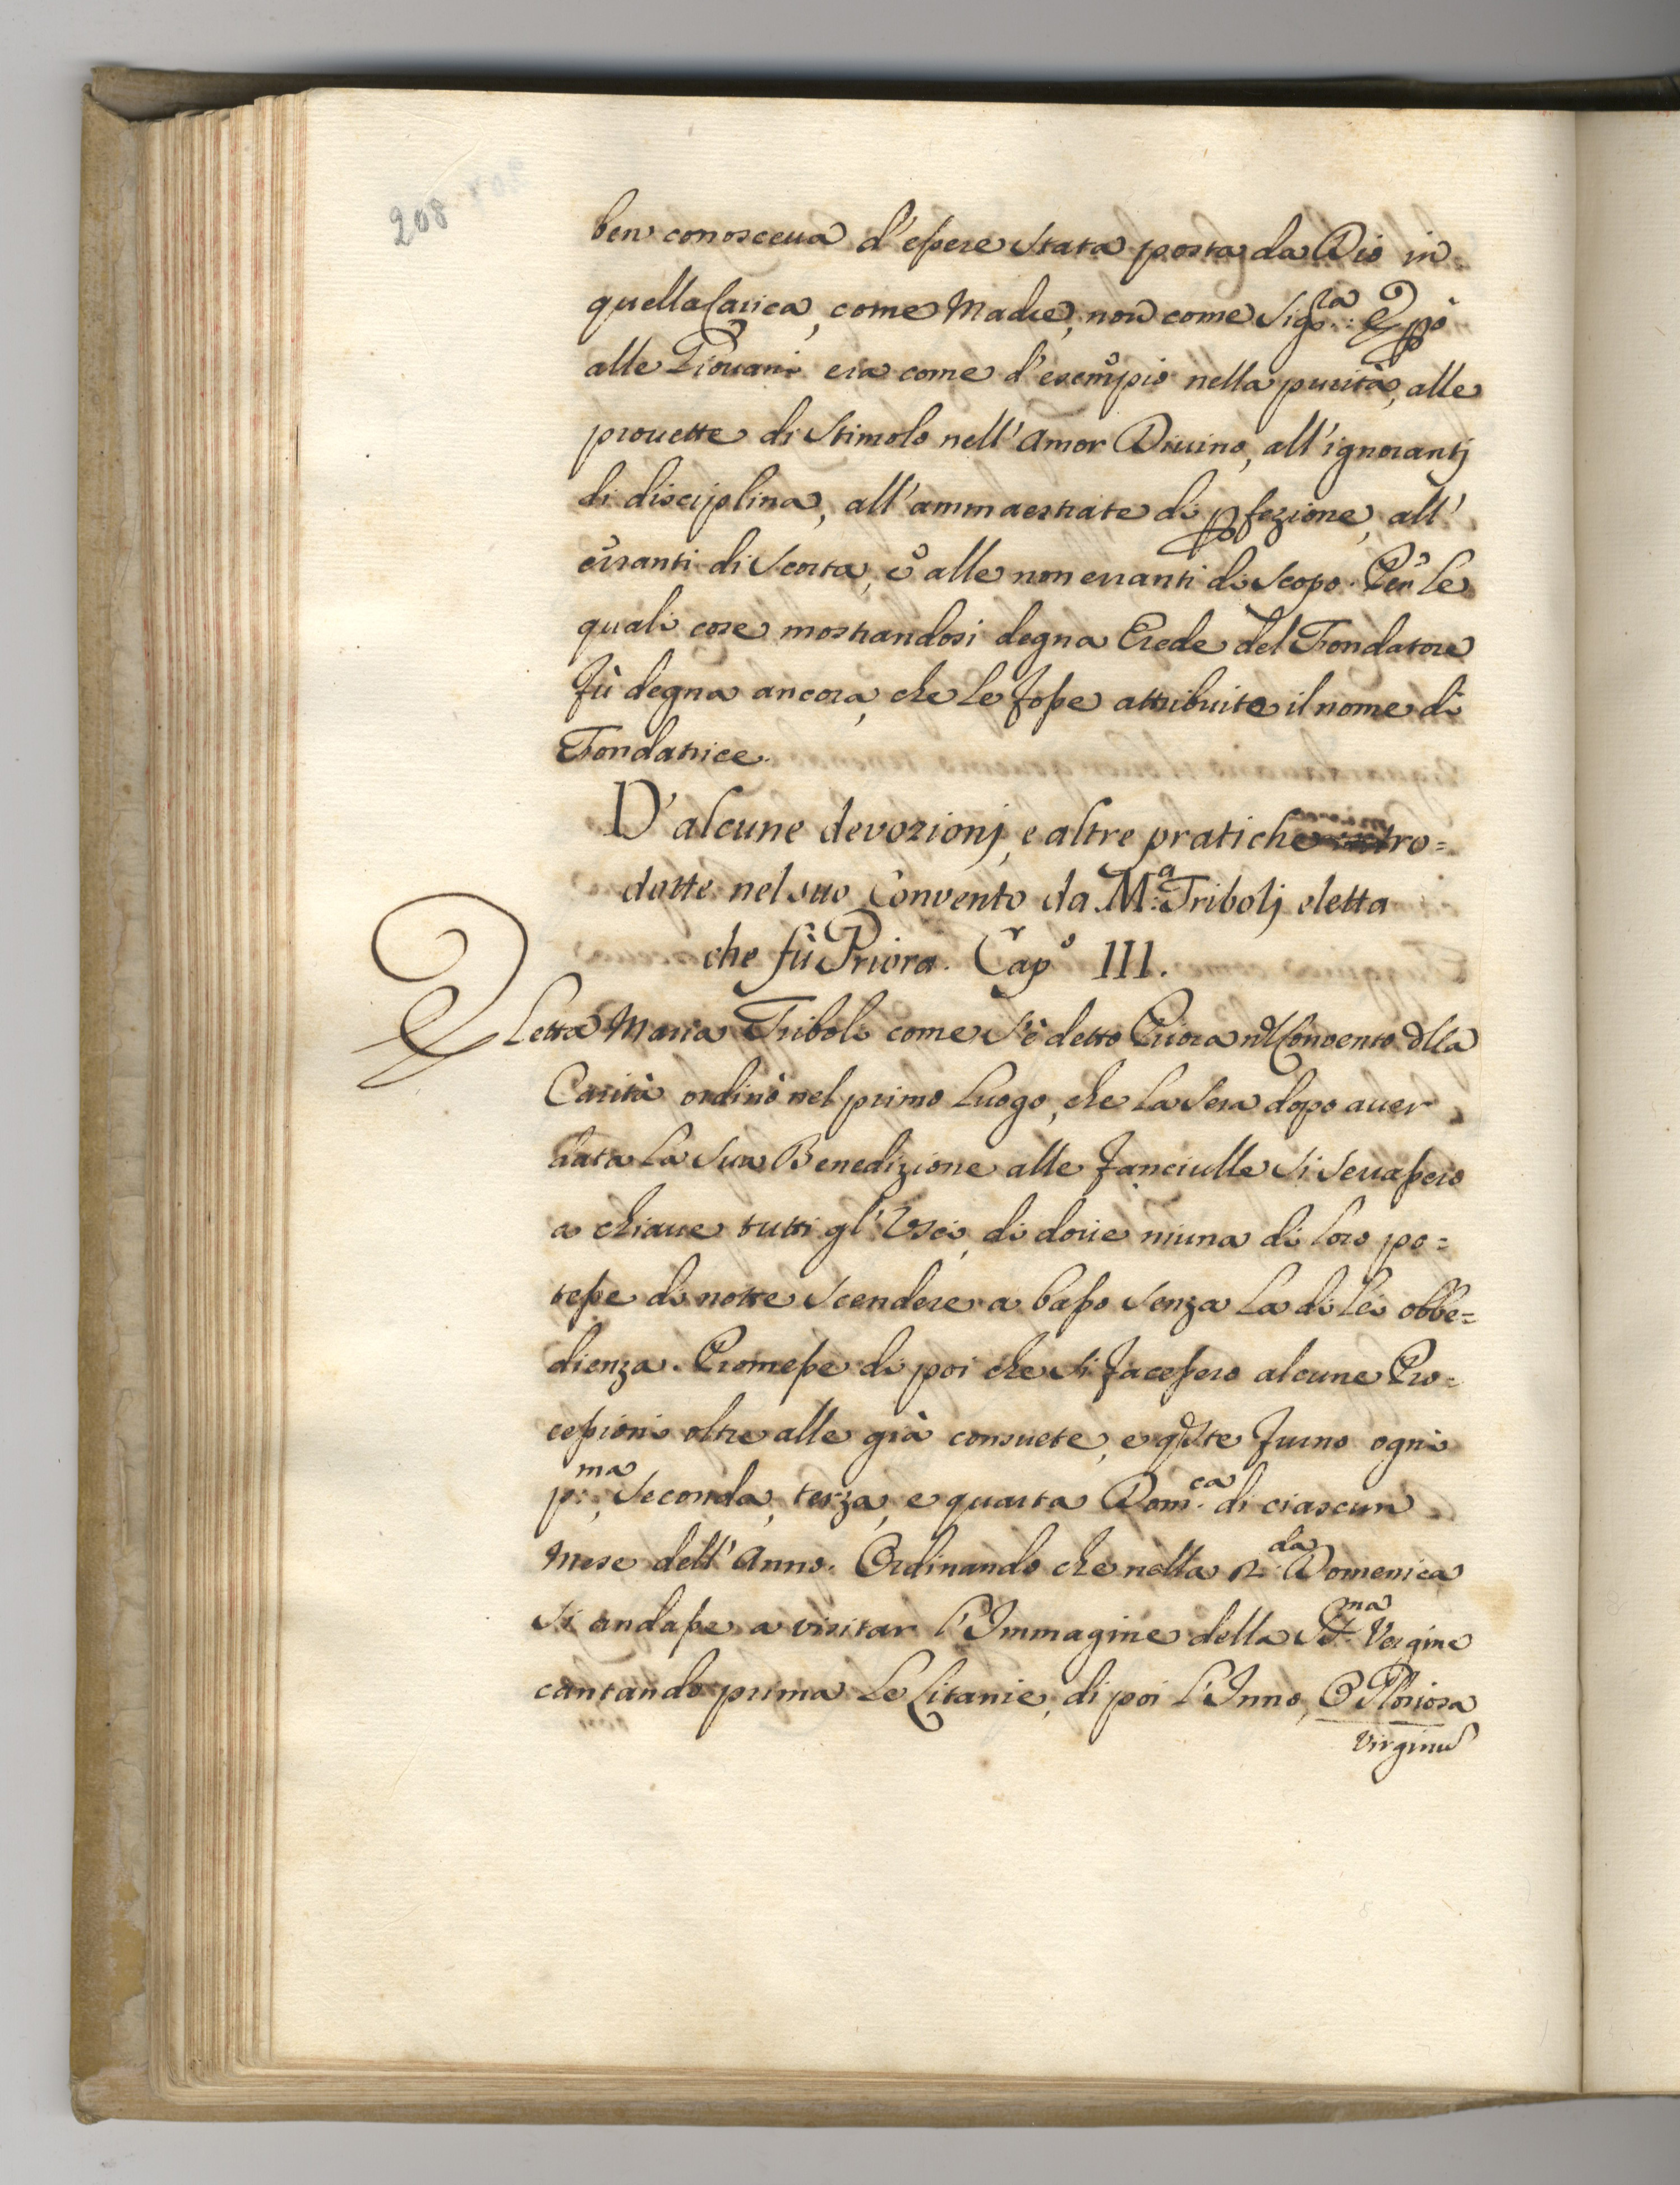 208
ben conosceua d'essere stata posta da Dio in
quella Carica, come Madre, non come Sig.ra E però
alle Giouani era come d'esempio nella purità, alle
prouette di stimolo nell'Amor Diuino, all'ignorantj
di disciplina, all'ammaestrate di pfezione, all'
erranti di scorta, e alle non erranti di scopo. Per le
quali cose mostrandosi degna Erede del Fondatore
fù degna ancora, che le fosse attribuito il nome di
Fondatrice.
D'alcune devozionj, e altre pratiche intro=
dotte nel suo Convento da M.a Tribolj eletta
che fù Priora. Capo III.
ELetta Maria Triboli come s'è detto Priora nel Convento della
Carità ordinò nel primo Luogo, che la sera dopo auer
data la sua Benedizione alle fanciulle si serrassero
a chiaue tutti gl'Usci, di doue niuna di loro po=
tesse di notte scendere a basso senza la di lei obbe=
dienza. Promesse di poi che si facessero alcune Pro=
cessioni oltre alle già consuete, e queste furno ogni
p:ma, seconda, terza, e quarta Dom:ca di ciascun
Mese dell'Anno. Ordinando che nella 2:da Domenica
si andasse a visitar l'Immagine della SS.ma Vergine
cantando prima le Litanie, di poi l'Inno, O Gloriosa
Virginũ